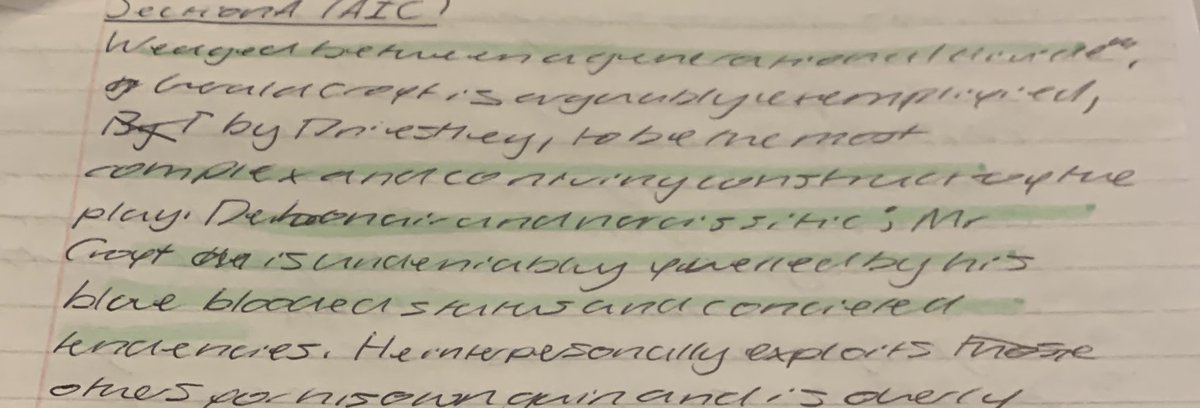 Section A (AIC)
Wedged between a generational divide",
Gerald Croft is arguably exemplified,
by Priestley, to be the most
complex and conniving construct of the
play. Debonair and narcissitic; Mr
Croft is undeniably fuelled by his
blue blooded status and concieted
tendencies. He interpersonally exploits those
others for his own gain and is overly